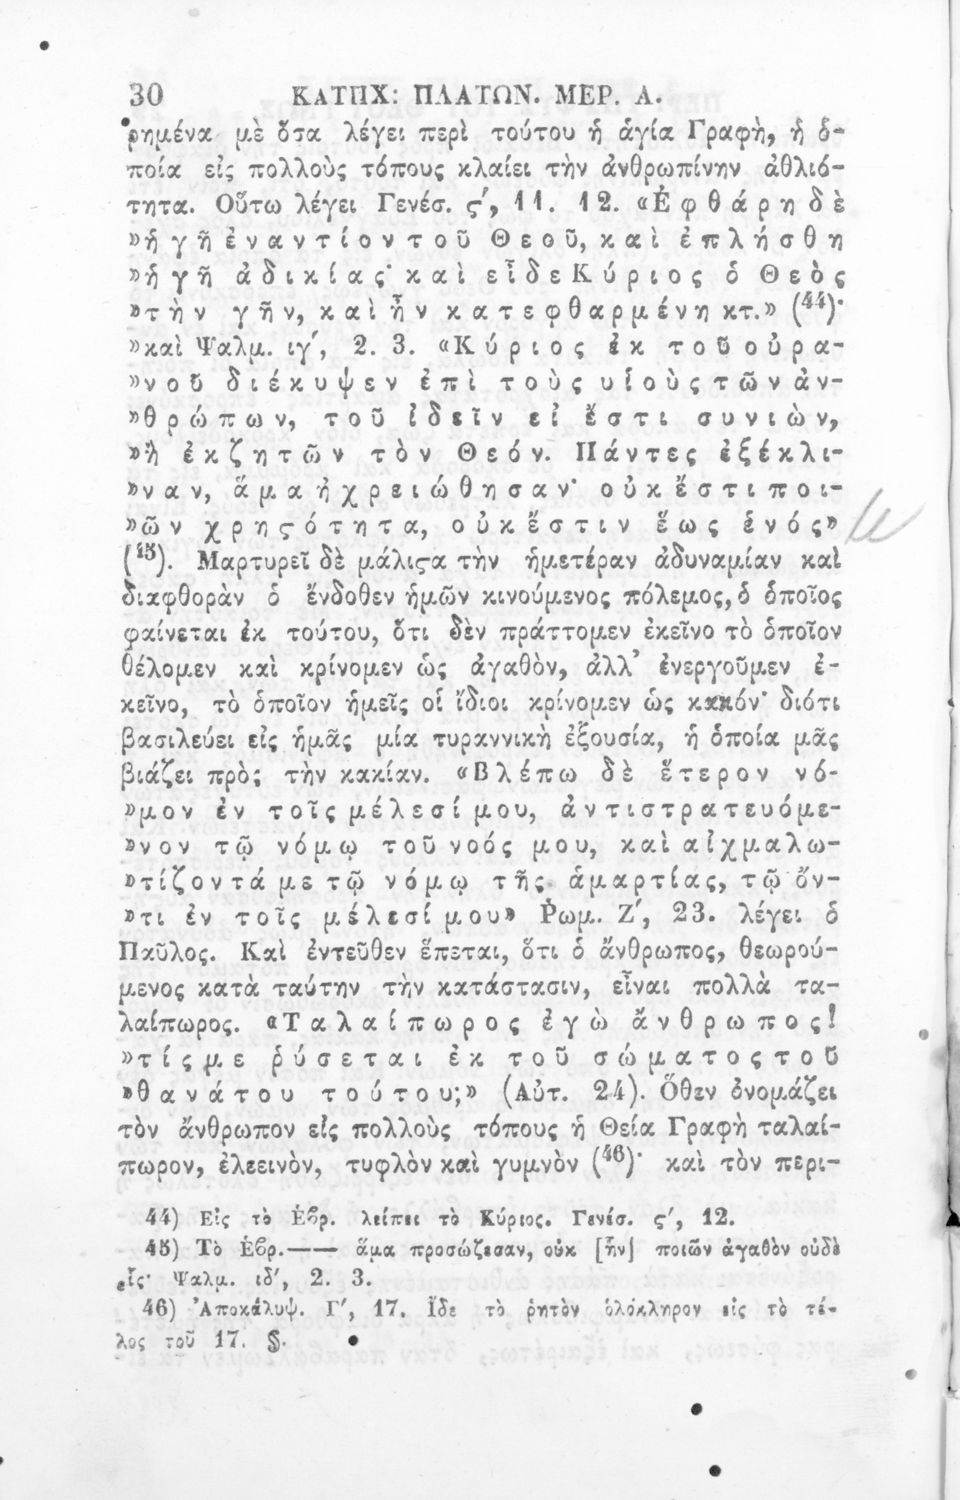 30 ΚΑΤΗΧ: ΠΛΑΤΩΝ. ΜΕΡ. Α.
ρημένα μὲ ὅσα λέγει περὶ τούτου ἡ ἁγία Γραφὴ, ἡ ὁ-
ποία εἰς πολλοὺς τόπους κλαίει τὴν ἀνθρωπίνην ἀθλιό-
τητα. Οὕτω λέγει Γενέσ. ϛ', 11. 12. «Ἐφθάρη δὲ
»ἡ γῆ ἐναντίον τοῦ Θεοῦ, καὶ ἐπλήσθη
»ἡ γῆ ἀδικίας· καὶ εἶδε Κύριος ὁ Θεὸς
»τὴν γῆν, καὶ ἦν κατεφθαρμένη κτ.» (44)·
»καὶ Ψαλμ. ιγ', 2. 3. «Κύριος ἐκ τοῦ οὐρα-
»νοῦ διέκυψεν ἐπὶ τοὺς υἱοὺς τῶν ἀν-
»θρώπων, τοῦ ἰδεῖν εἰ ἔστι συνιὼν,
»ἢ ἐκζητῶν τὸν Θεόν. Πάντες ἐξέκλι-
»ναν, ἅμα ἠχρειώθησαν· οὐκ ἔστι ποι-
»ῶν χρηϛότητα, οὐκ ἔστιν ἕως ἑνός»
(45). Μαρτυρεῖ δὲ μάλιϛα τὴν ἡμετέραν ἀδυναμίαν καὶ
διαφθορὰν ὁ ἔνδοθεν ἡμῶν κινούμενος πόλεμος, ὁ ὁποῖος
φαίνεται ἐκ τούτου, ὅτι δὲν πράττομεν ἐκεῖνο τὸ ὁποῖον
θέλομεν καὶ κρίνομεν ὡς ἀγαθὸν, ἀλλ' ἐνεργοῦμεν ἐ-
κεῖνο, τὸ ὁποῖον ἡμεῖς οἱ ἴδιοι κρίνομεν ὡς κακόν· διότι
βασιλεύει εἰς ἡμᾶς μία τυραννικὴ ἐξουσία, ἡ ὁποία μᾶς
βιάζει πρὸς τὴν κακίαν. «Βλέπω δὲ ἕτερον νό-
»μον ἐν τοῖς μέλεσί μου, ἀντιστρατευόμε-
»νον τῷ νόμῳ τοῦ νοός μου, καὶ αἰχμαλω-
»τίζοντά με τῷ νόμῳ τῆς ἁμαρτίας, τῷ ὄν-
»τι ἐν τοῖς μέλεσί μου» Ῥωμ. Ζ', 23. λέγει ὁ
Παῦλος. Καὶ ἐντεῦθεν ἕπεται, ὅτι ὁ ἄνθρωπος, θεωρού-
μενος κατὰ ταύτην τὴν κατάστασιν, εἶναι πολλὰ τα-
λαίπωρος. «Ταλαίπωρος ἐγὼ ἄνθρωπος!
»τίς με ῥύσεται ἐκ τοῦ σώματος τοῦ
»θανάτου τούτου;» (Αὐτ. 24). Ὅθεν ὀνομάζει
τὸν ἄνθρωπον εἰς πολλοὺς τόπους ἡ Θεία Γραφὴ ταλαί-
πωρον, ἐλεεινὸν, τυφλὸν καὶ γυμνὸν (46)· καὶ τὸν περι-
44) Εἰς τὸ Ἑβρ. λείπει τὸ Κύριος. Γενέσ. ϛ', 12.
45) Τὸ Ἑβρ.—— ἅμα προσώζεσαν, οὐκ [ἦν] ποιῶν ἀγαθὸν οὐδὲ
εἷς· Ψαλμ. ιδ', 2. 3.
46) Ἀποκάλυψ. Γ', 17. Ἴδε τὸ ῥητὸν ὁλόκληρον εἰς τὸ τέ-
λος τοῦ 17. §.